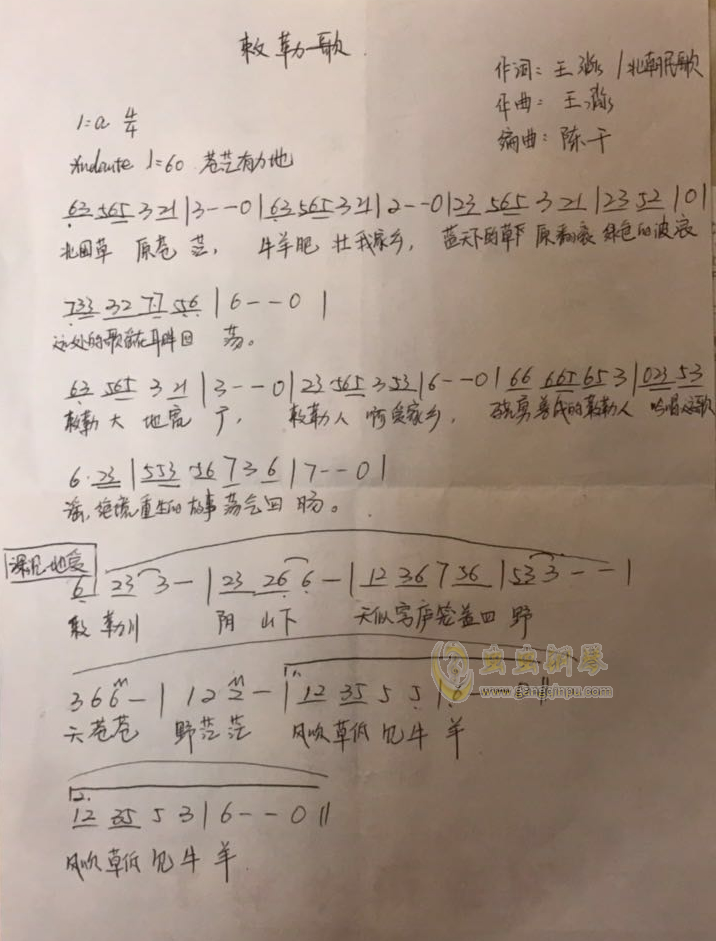 敕勒歌
作词: 王潞 / 北朝民歌
作曲: 王潞
编曲: 陈一干
1=a 4/4
Andante ♩=60 苍茫有力地
63 565 3 21 | 3 - - 0 | 63 565 3 21 | 2 - - 0 | 23 565 3 21 | 23 52 | 0 |
北国草 原苍 茫, 牛羊肥 壮我家乡, 蓝天下的草 原翻滚 绿色的波浪
733 32 77 56 | 6 - - 0 |
远处的歌 在耳畔回 荡。
63 565 3 21 | 3 - - 0 | 23 565 3 53 | 6 - - 0 | 66 665 65 3 | 023 53
敕勒 大 地宽 了, 敕勒人 啊爱家乡, 骁勇善战的敕勒人 吟唱 歌
6· 23 | 553 56 7 3 6 | 7 - - 0 |
谣, 绝境重生的 故事 荡气回 肠。
深沉地
6 | 23 3 - | 23 26 6 - | 12 36 7 56 | 53 3 - - |
敕 勒川 阴 山下 天似穹庐笼盖四 野
3 6 6 - | 1 2 2 - | 1. 12 35 5 5 | 6 - - 0 ‖
天苍苍 野茫茫 风吹草低 见 牛 羊
虫虫钢琴
www.gangqinpu.com
2. 12 35 5 3 | 6 - - 0 ‖
风吹草低 见 牛 羊